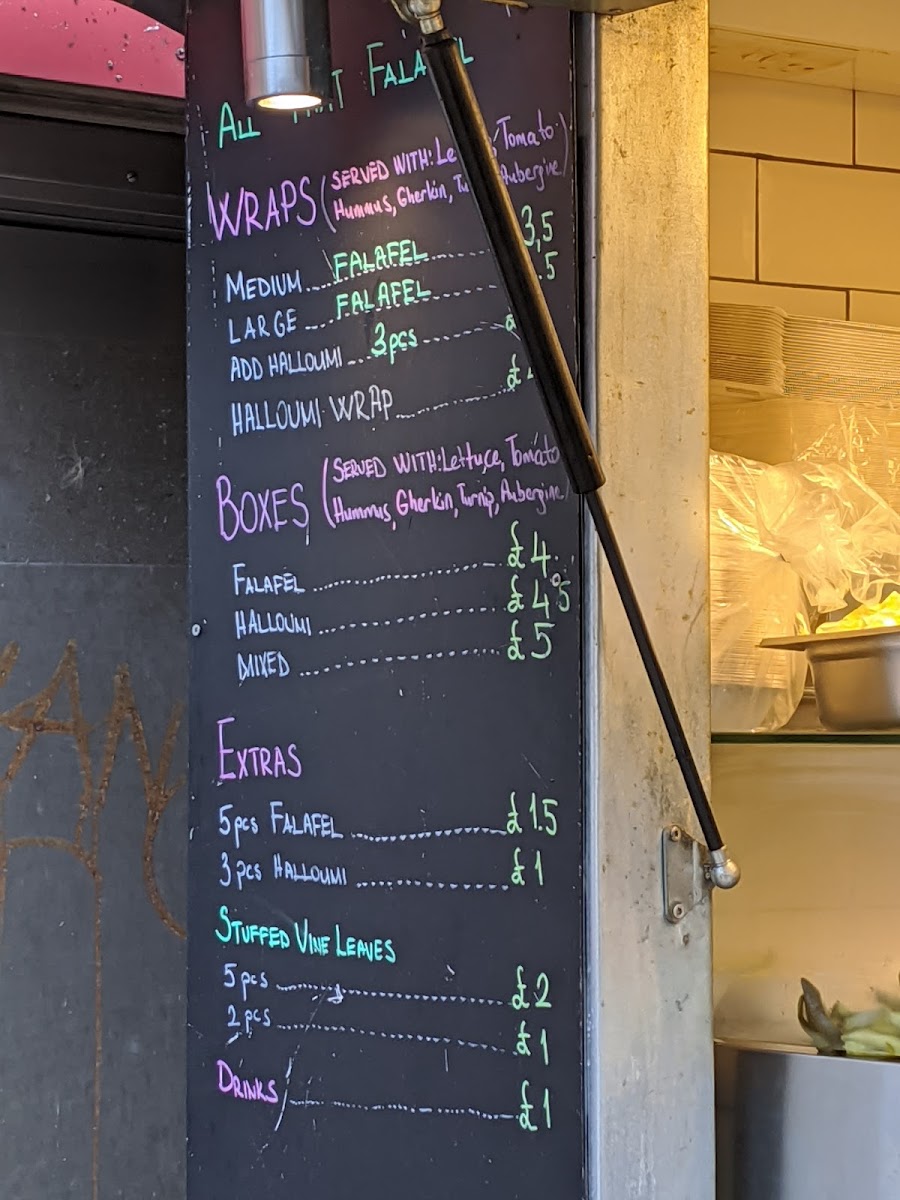 ALL FALA
WRAPS (SERVED WITH: Le Tomato)
Hummus, Gherkin, Tu Aubergine)
MEDIUM FALAFEL 3,5
LARGE FALAFEL .5
ADD HALLOUMI 3pcs
HALLOUMI WRAP £
BOXES (SERVED WITH: Lettuce, Tomato
Hummus, Gherkin, Turnip, Aubergine)
FALAFEL £4
HALLOUMI £4.5
MIXED £5
EXTRAS
5pcs FALAFEL £1.5
3pcs HALLOUMI £1
STUFFED VINE LEAVES
5pcs £2
2pcs £1
DRINKS £1